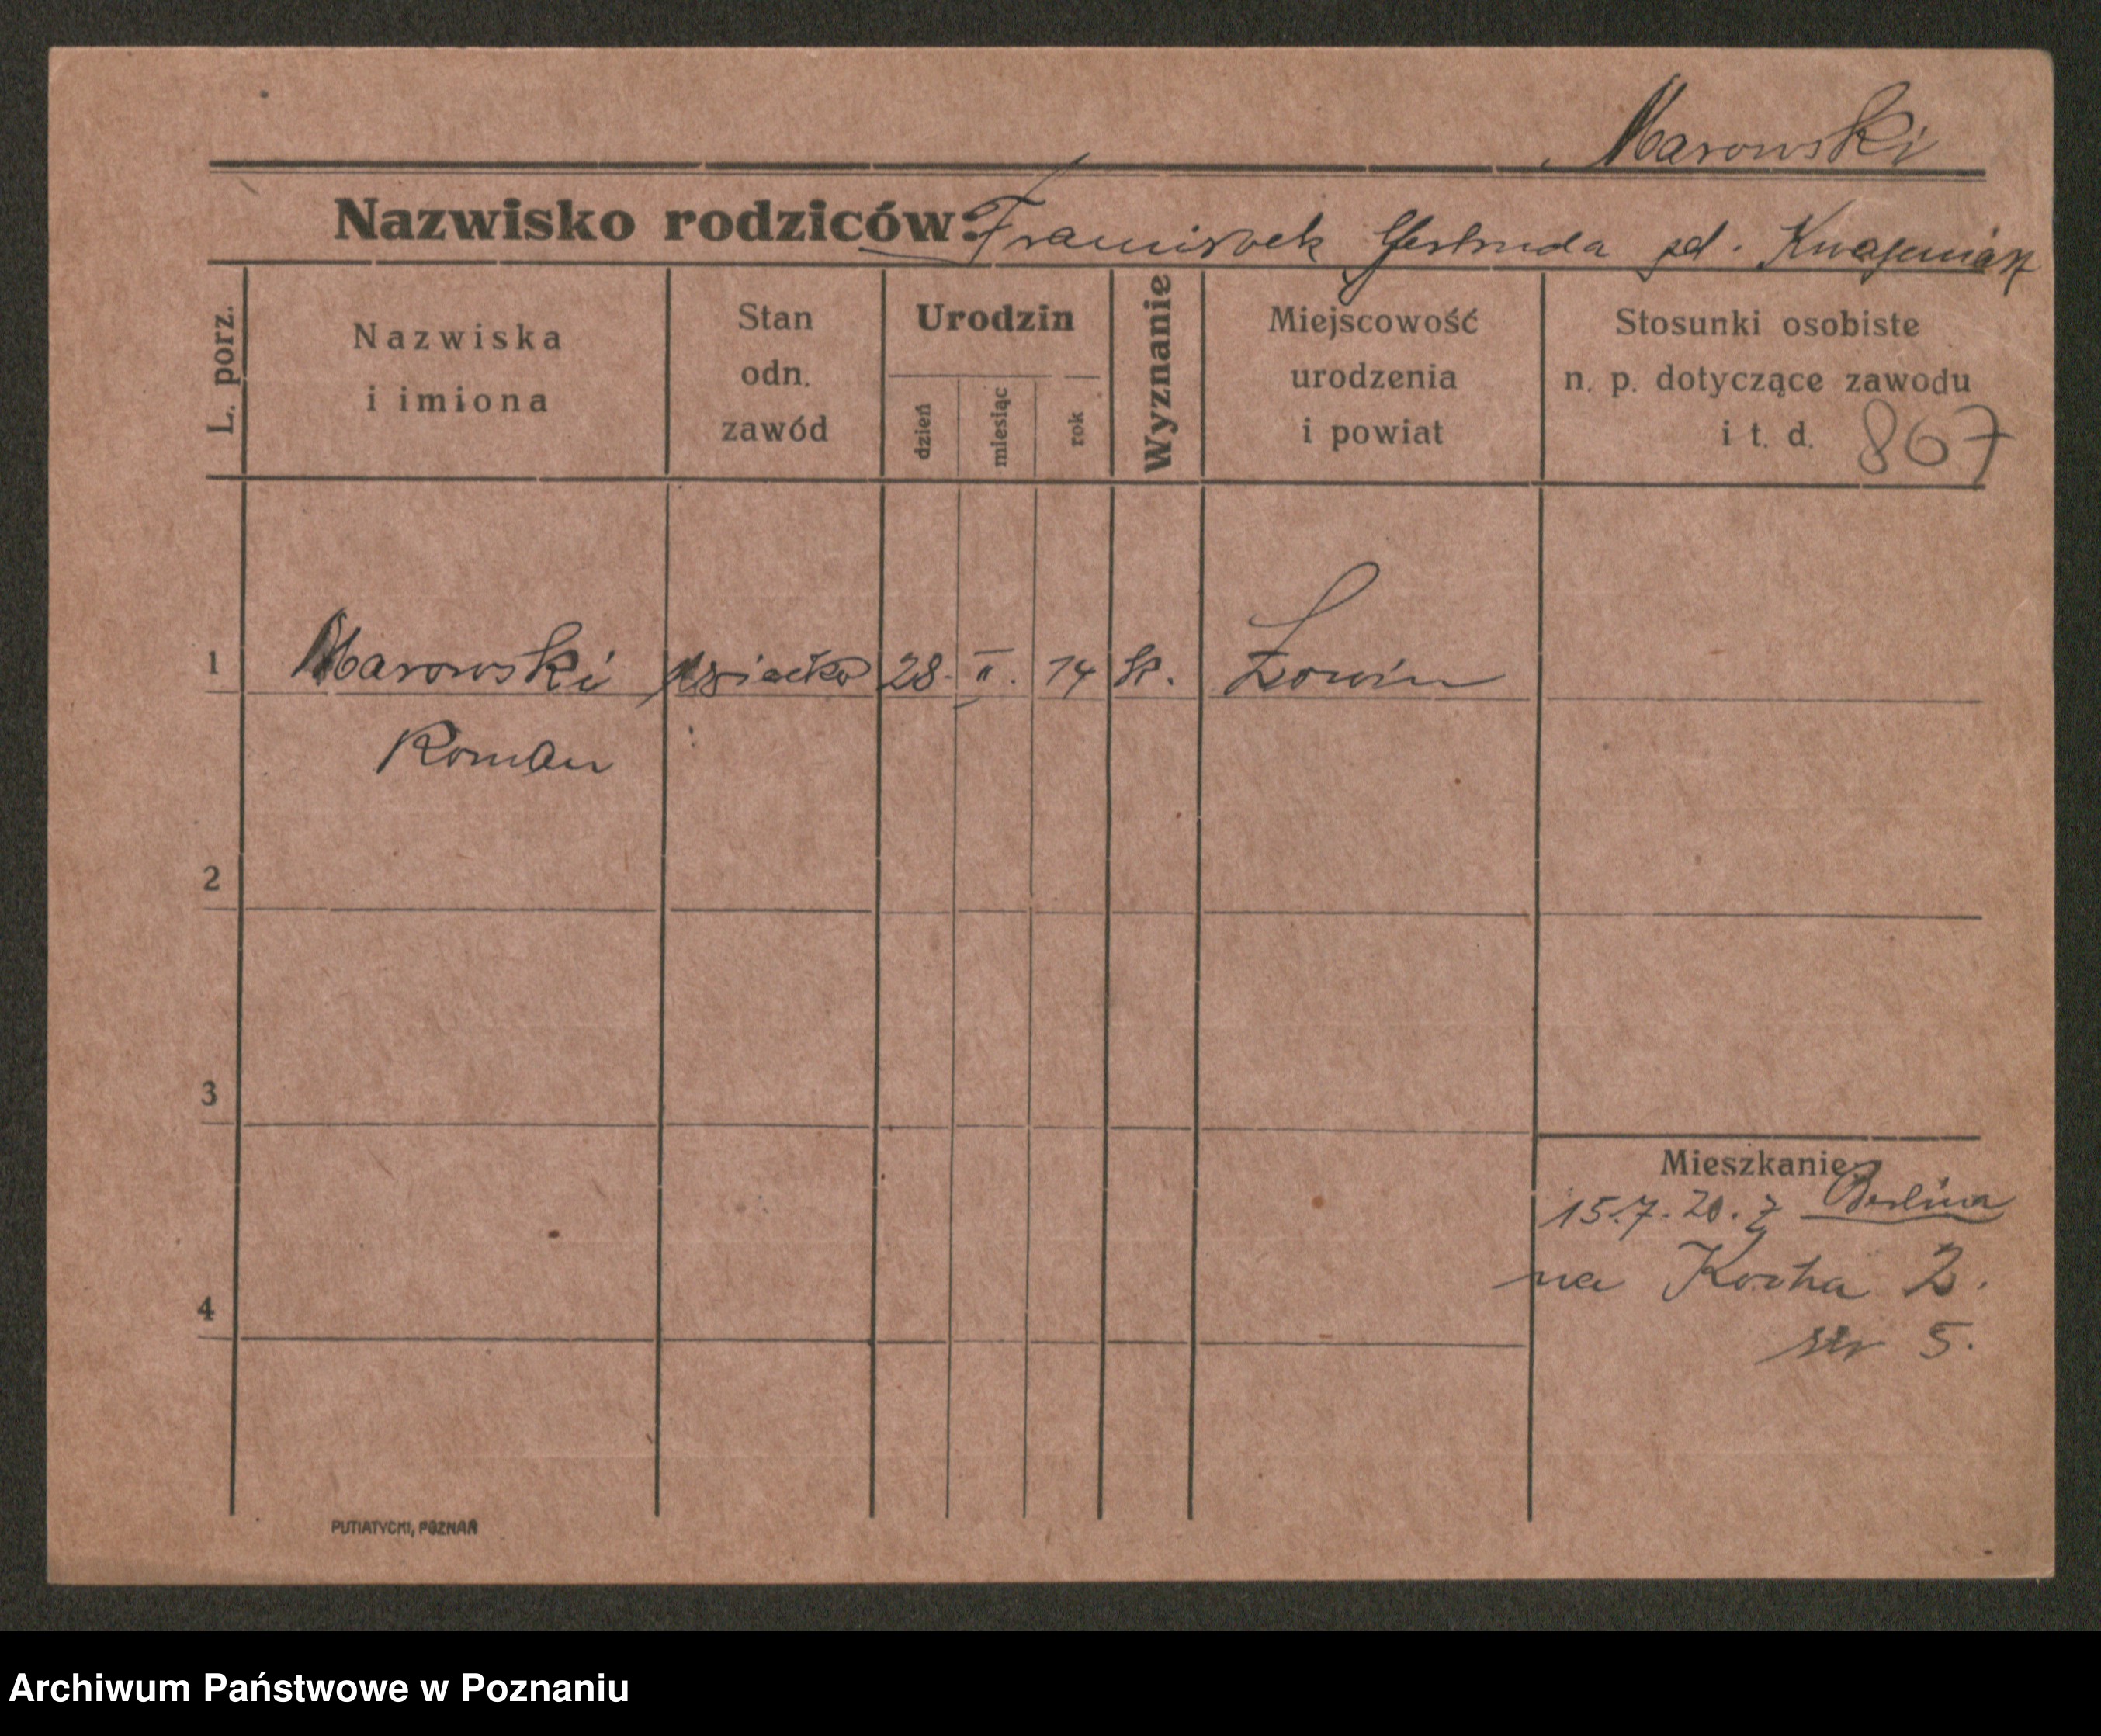 Marowski
Nazwisko rodziców: Franciszek Gertruda zd.
L. porz.
Nazwiska
i imiona
Stan
odn.
zawód
Urodzin
dzień
miesiąc
rok
Wyznanie
Miejscowość
urodzenia
i powiat
Stosunki osobiste
n. p. dotyczące zawodu
i t. d. 867
1 Marowski dziecko 28. II. 14
Roman
2
3
4
Mieszkanie:
15.7.20. z Berlina
na Kocha 2.
5.
PUTIATYCKI, POZNAŃ
Archiwum Państwowe w Poznaniu